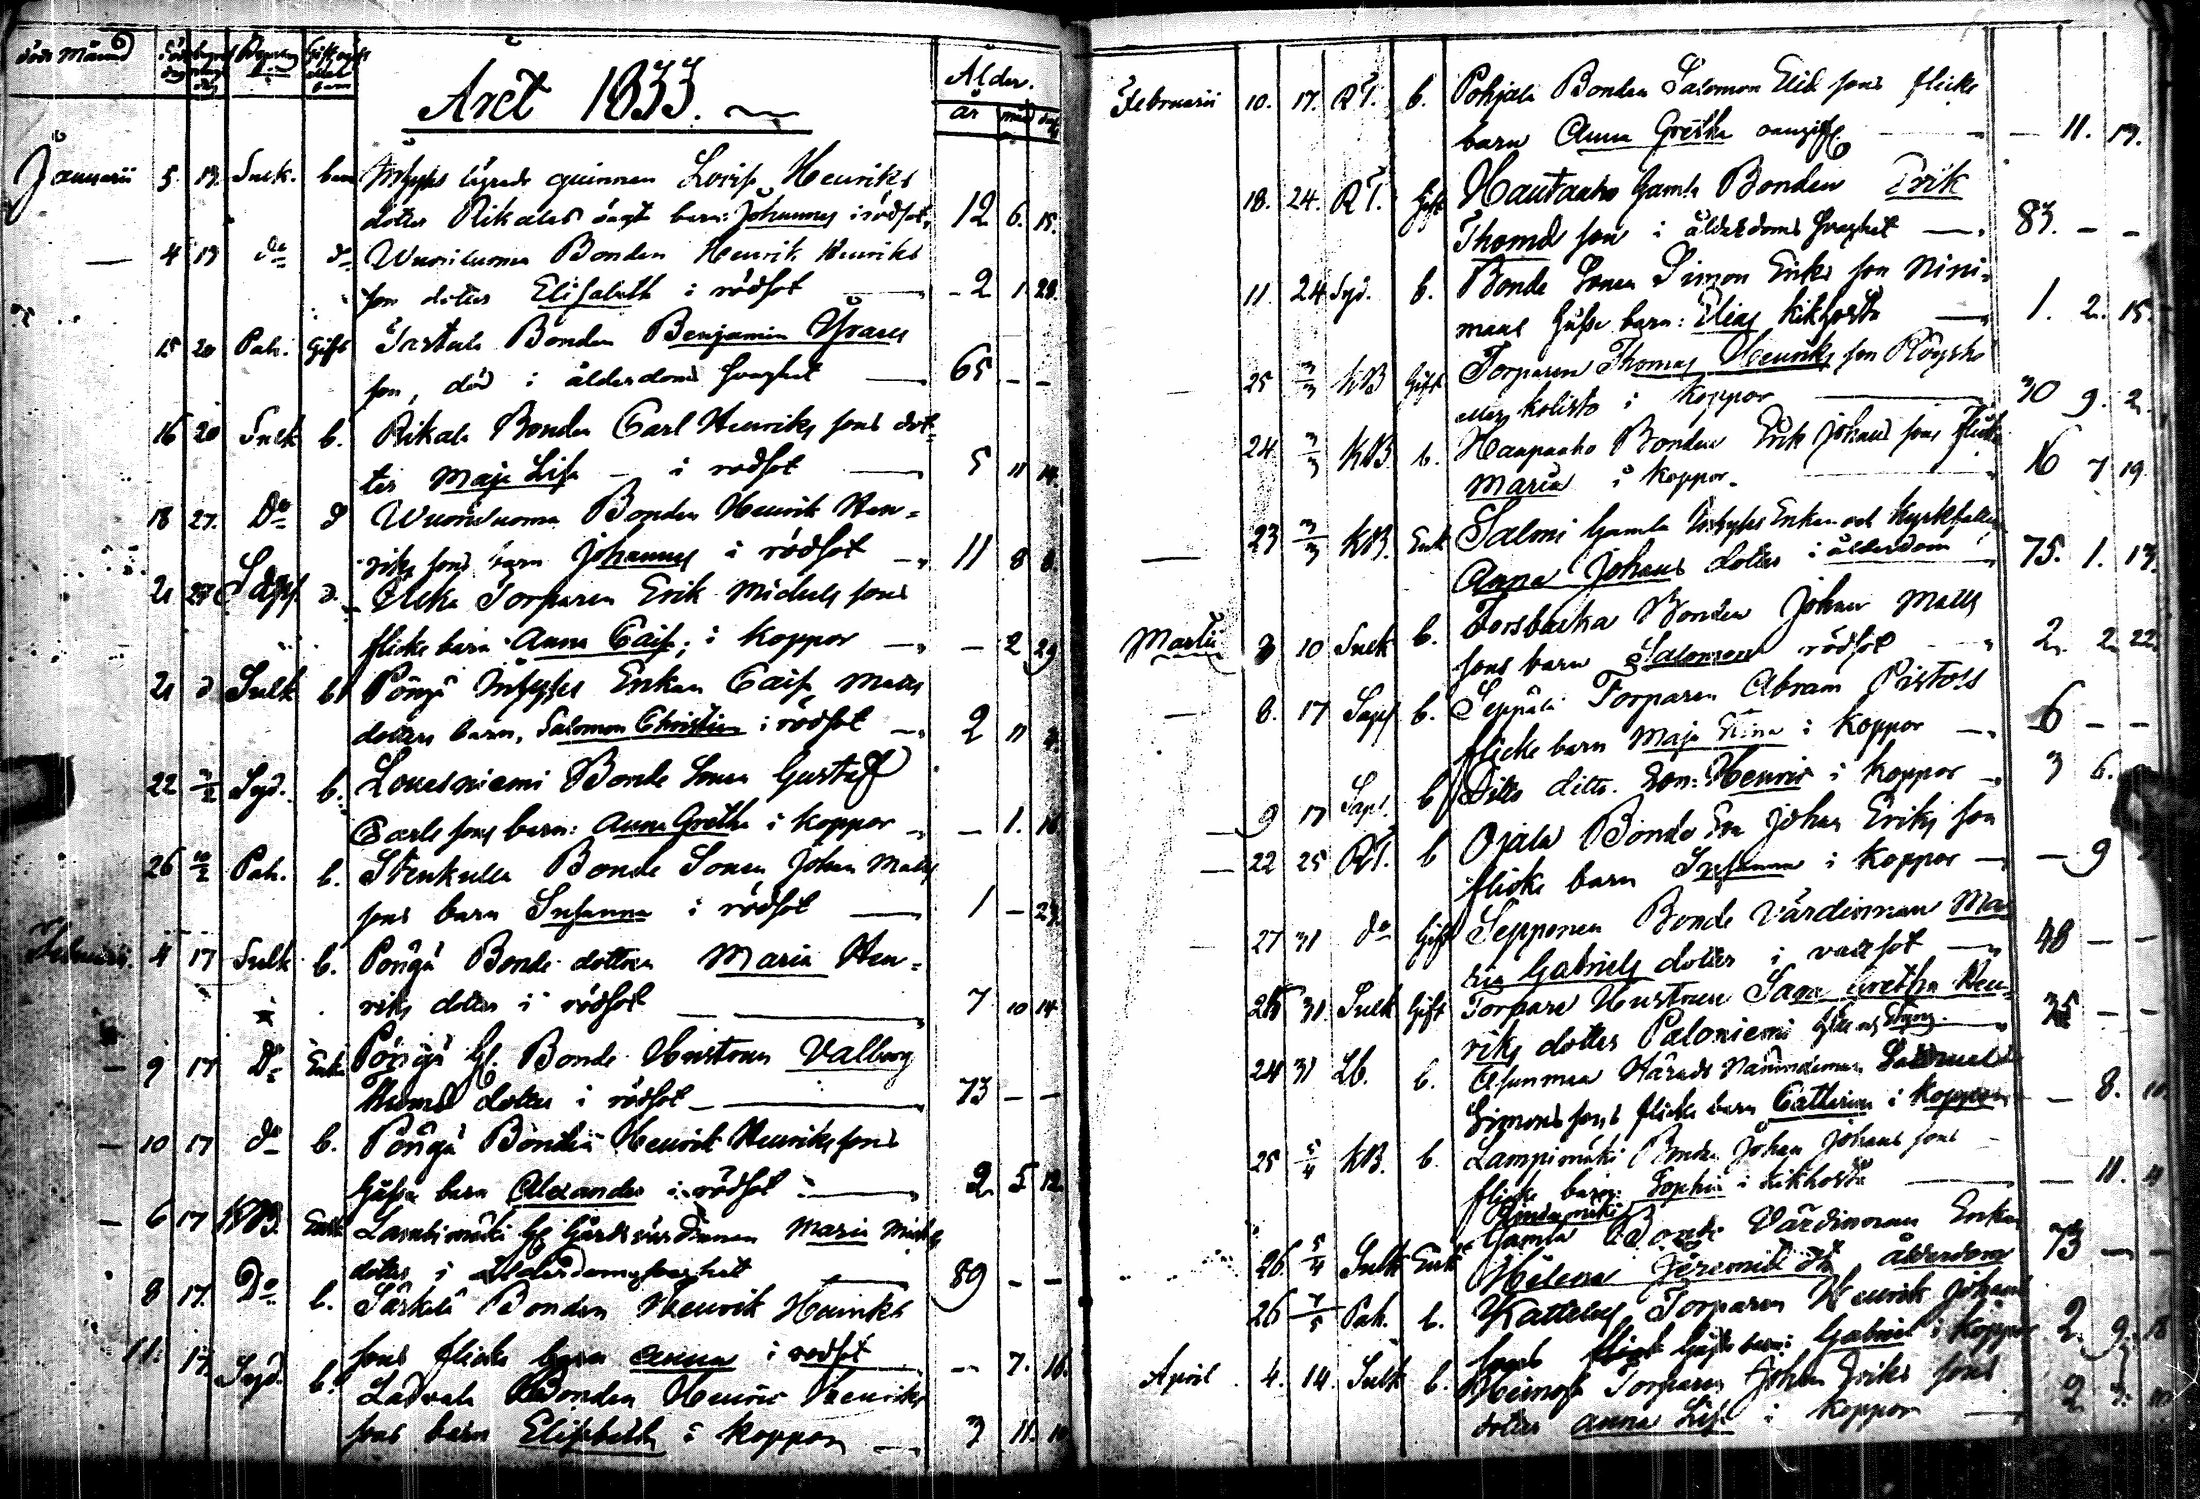 döde Månad
Ålder.
år
Året 1833.
Januarii 5. 13. Sulk. barn Inhyses lägrade quinnan Lovisa Henriks
dotter Rikalas oägta barn: Johannes i rödsot, 12 6. 15.
— 4 13 do do Wuorenoma Bonden Henrik Henriks
son dotter Elisabeth i rödsot — 2 1. 28.
15 20 Pah. Gift Jastala Bonden Benjamin Göraus
son, död i ålderdoms svaghet — 65 — —
16 20 Sulk b. Rikala Bonden Carl Henriks sons dot-
ter Maja Lisa — i rödsot — 5 11 14.
18 27. Do d Bonden Henrik Hen-
riks sons barn Johannes i rödsot — 11 8 8.
21 27 Torparen Erik Michels sons
flicke barn Anna Caisa, i koppor — — 2 29
21 d Sulk b Pöngä Inhyses Enkan Caisa Matts
dotters barn, Salomon Christian i rödsot — 2 11
22 3/2 Syd. b. Louesniemi Bonde Sonen Gustaf
Carls sons barn: Anna Gretha i koppor — 1. 16
26 10/2 Pah. b. Stenkulla Bonde Sonen Johan Matts
sons barn Susanna i rödsot — 1 — 27.
Februari. 4 17 Sulk b. Pöngä Bonde dottren Maria Hen-
riks dotter i rödsot — 7 10 14
— 9 17 Do Enka Pöngä Gl. Bonde Hustrun Valborg
Thomas dotter i rödsot — 73 — —
— 10 17 do b. Pöngä Bonden Henrik Henriks sons
Gåsse barn Alexander i rödsot — 2 5 12
— 6 17 KB. Enk Lambimäki Gl Gårdsvärdinnan Maria Michels
dotter i Ålderdomssvaghet — 89 — —
8 17. Do b. Särkelä Bonden Henrik Henriks
sons flicke barn Anna i rödsot — 7. 16.
11. 17. Syd. b. Ladvala Bonden Henric Henriks
sons barn Elisabeth i koppor — 3 11. 10
Februarii 10. 17. RT. b. Pohjala Bonden Salomon Elias sons flicke
barn Anna Gretha oangifl — — 11. 17.
18. 24. RT. Gift Hautaaho Gamla Bonden Erik
Thomas son i ålderdoms svaghet — 83. — —
11 24 Syd. b. Bonde Sonen Simon Eriks son Nini-
maas Gåsse barn: Elias kikhosta — 1. 2. 15.
25 3/3 KB Gift Torparen Thomas Henriks son
kolisto i koppor — 30 9. 2.
24 3/3 KB. b. Haapaaho Bonden Erik Johans sons flicka
Maria i koppor. — 16 7 19.
— 23 3/3 KB. Enk Saloni Gamla Inhyses Enkan och
Anna Johans dotter i ålderdom — 75. 1. 13.
Martii 3 10 Sulk b. Forsbacka Bonden Johan Matts
sons barn Salomon rödsot — 2. 2 22
— 8. 17 Sapf b. Seppälä Torparen Abram Pistols
flicke barn Maja Stina i koppor — 6 — —
— 9 17 Sapf. b Ditto ditto. son: Henric i koppor — 3 6.
— 22 25 RT. b Ojala Bonde Son Johan Eriks son
flicke barn Susanna i koppor — — 9
— 27 31 do Gift Sepponen Bonde Värdinnan Ma
ria Gabriels dotter i vattsot — 48 — —
26 31. Sulk Gift Torpare Hustrun Saga Gretha Hen-
riks dotter Paloniemi håll och styng. — — —
24 31 Lb. b. Härads Nämndeman
Simons sons flicke barn Catharina i koppor — 8. 10
25 5/4 KB. b. Lampimäki Bonden Johan Johans sons
flicke barn: Sophia i kikhosta — — 11. 4
26 5/4 Sulk Enk Gamla Bonde Värdinnan Enkan
Helena Jeremias dr Ålderdom 73 — —
26 7/5 Pah. b. Kattelus Torparen Henrik Johans
sons Gåsse barn: Gabriel i koppor 2. 9. 18
April 4. 14. Sulk b. Heinoja Torparen Johan Eriks sons
dotter Anna Lisa i koppor — 2 3. 10